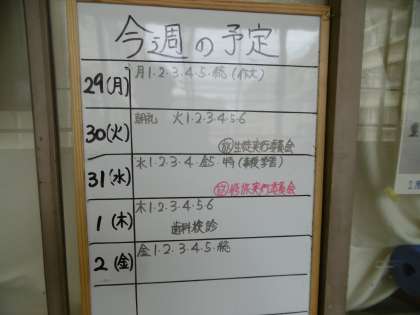 今週の予定
29(月) 月1・2・3・4・5・総
30(火) 朝礼 火1・2・3・4・5・6
生徒実行委員会
31(水) 水1・2・3・4・金5
実行委員会
1(木) 木1・2・3・4・5・6
歯科検診
2(金) 金1・2・3・4・5・総